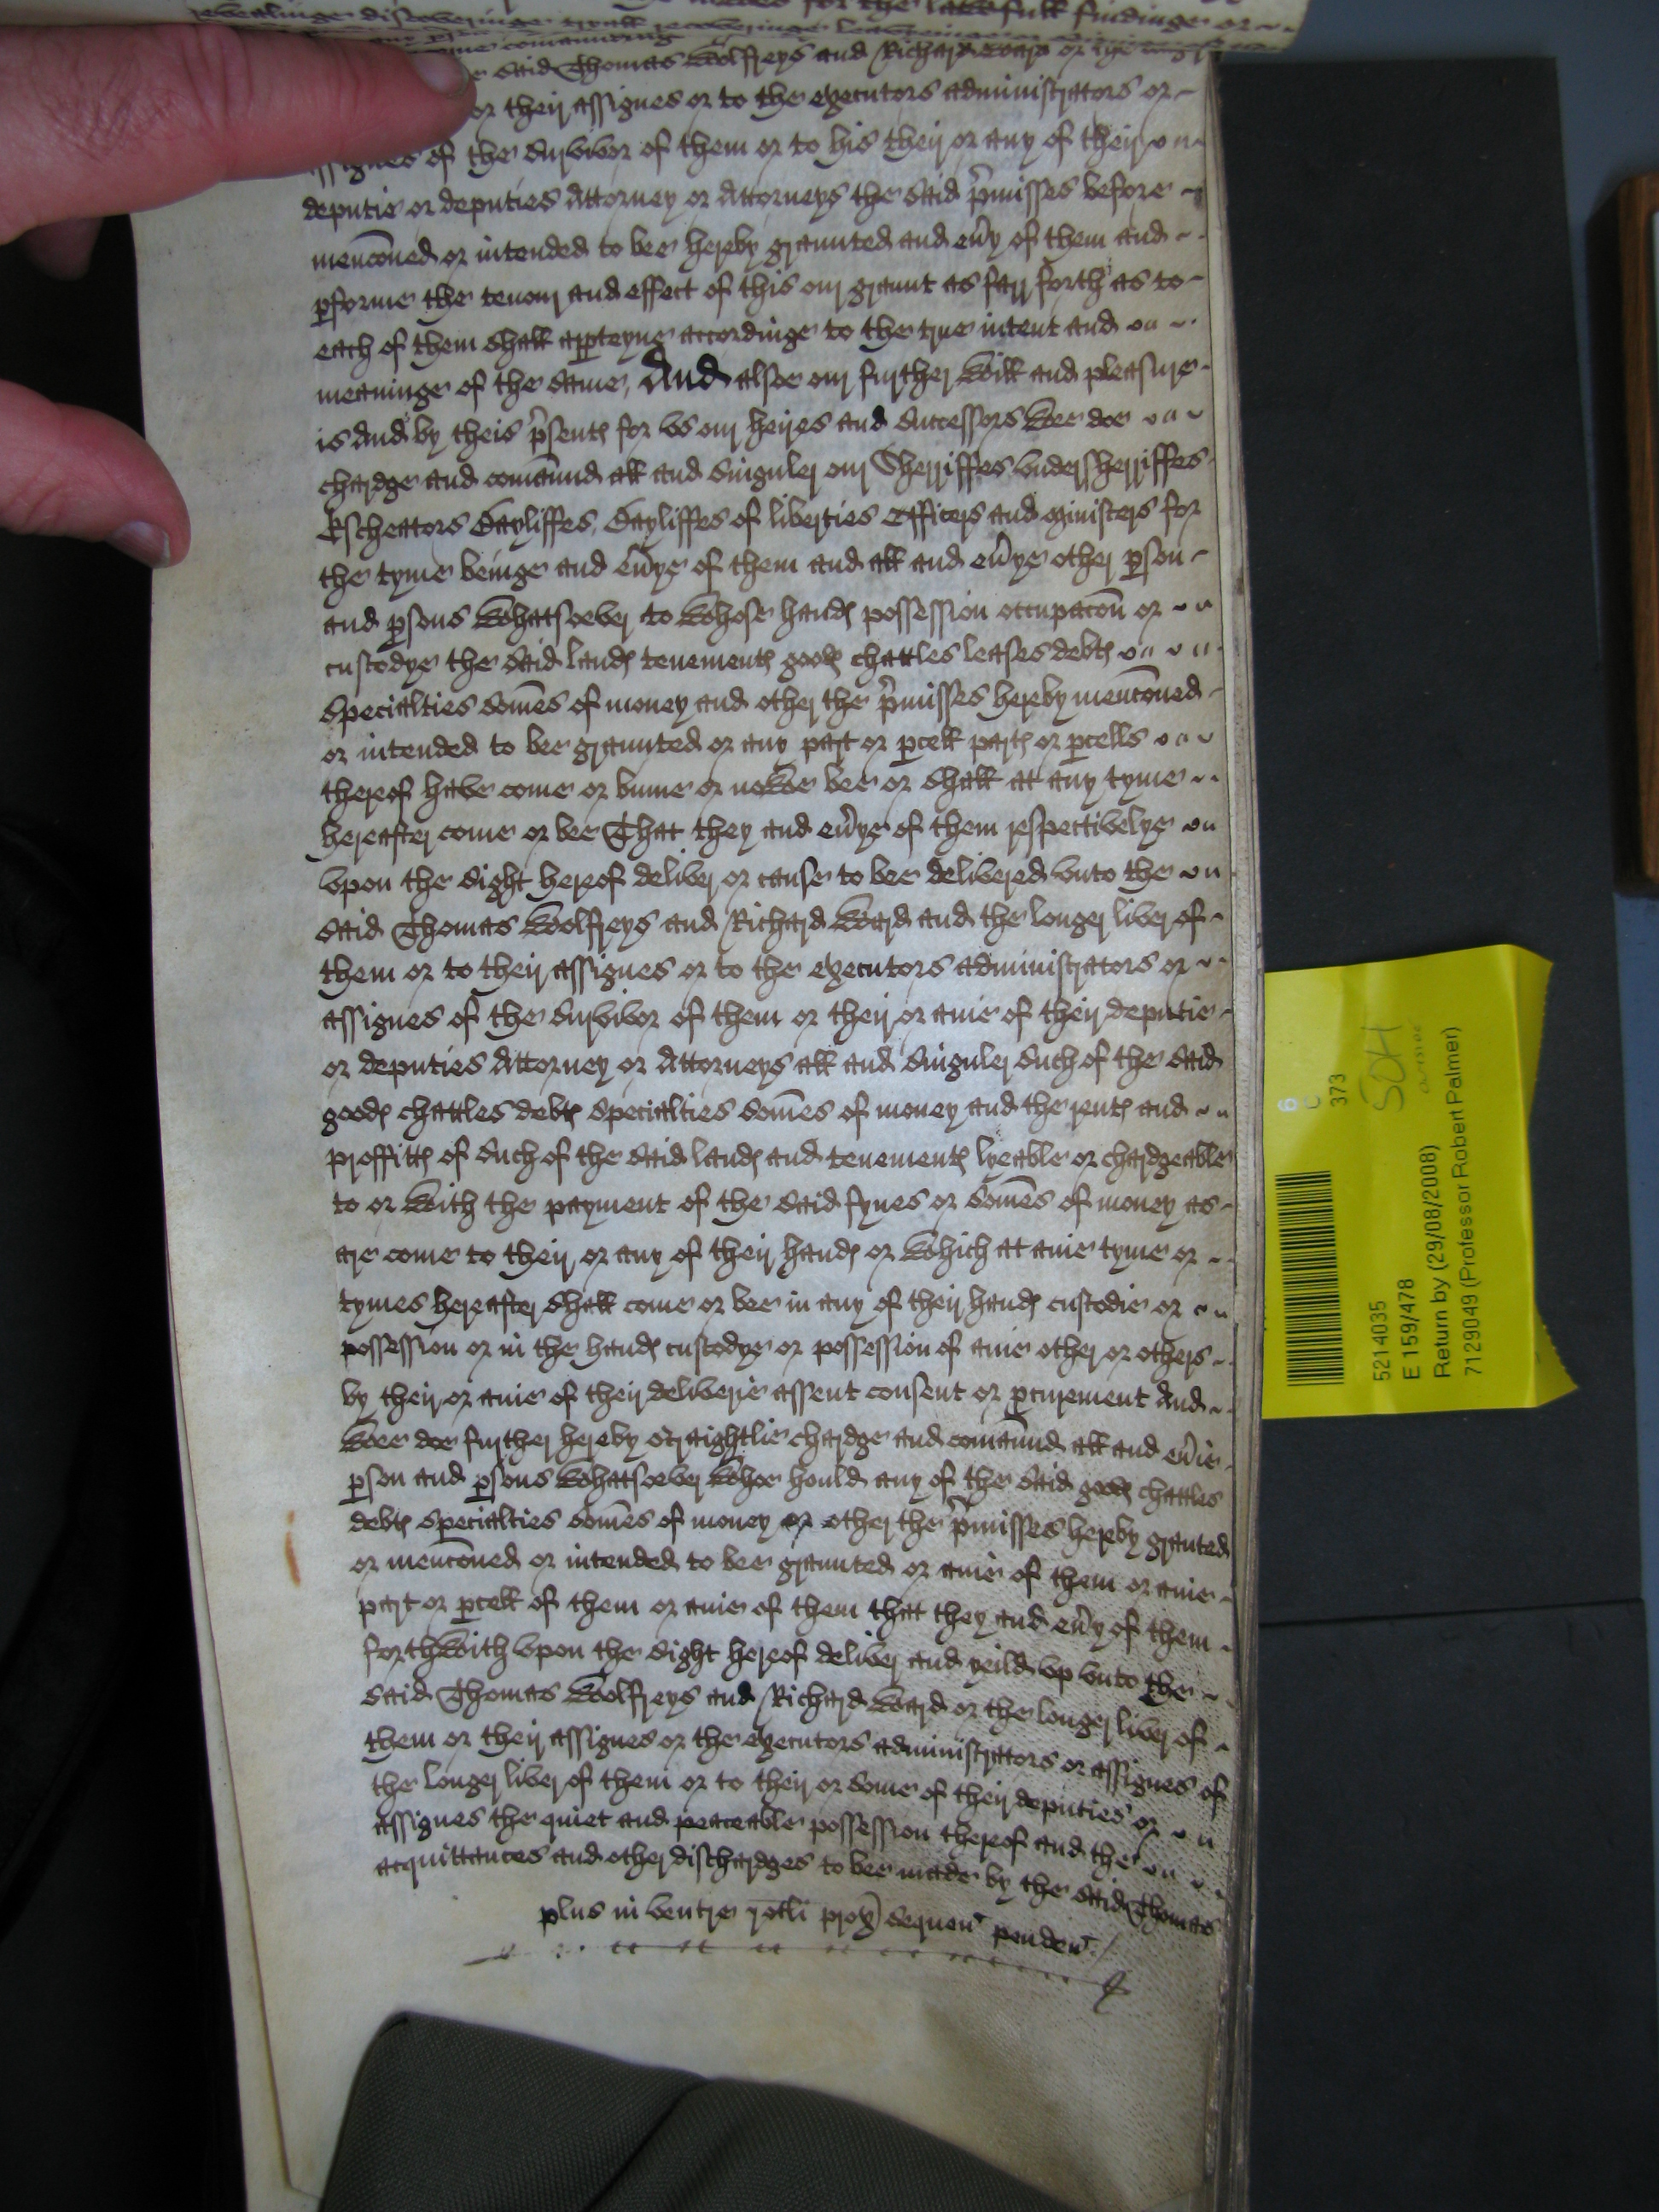 for the lawfull findinge or
said Thomas Wolfreys and Richard Ward or
or their assignes or to the executors administrators or
of the survivor of them or to his their or any of their
deputie or deputies Attorney or Attorneys the said p̃misses before
menc̃oned or intended to bee hereby graunted and eũy of them and
pforme the tenour and effect of this our graunt as farr forth as to
each of them shall apperteyne accordinge to the true intent and
meaninge of the same, And alsoe our further will and pleasure
is And by theis p̃sentes for us our heires and successors wee doe
chardge and com̃aund all and singuler our Sherriffes undersherriffes
Escheators Bayliffes, Bayliffes of liberties Officers and ministers for
the tyme beinge and eũye of them and all and eũye other pson
and psons whatsoever to whose handes possession occupac̃on or
custodye the said landes tenementes goodes chattles leases debtes
specialties som̃es of money and other the p̃misses hereby menc̃oned
or intended to bee graunted or any part or pcell partes or pcells
thereof have come or bume or nowe bee or shall at any tyme
hereafter come or bee That they and eũye of them respectivelye
upon the sight hereof deliver or cause to bee delivered unto the
said Thomas Wolfreys and Richard Ward and the longer liver of
them or to their assignes or to the executors administrators or
assignes of the survivor of them or their or anie of their deputie
or deputies Attorney or Attorneys all and singuler such of the said
goodes chattles debtes specialties som̃es of money and the rentes and
proffittes of such of the said landes and tenementes lyeable or chardgeable
to or with the payment of the said fynes or som̃es of money as
are come to their or any of their handes or which at anie tyme or
tymes hereafter shall come or bee in any of their handes custodie or
possession or in the handes custodye or possession of anie other or others
by their or anie of their deliverie assent consent or pcurement And
wee doe further hereby straightlie chardge and com̃aund all and eũie
pson and psons whatsoever whoe hould any of the said goodes chattles
debtes specialties som̃es of money or other the p̃misses hereby granted
or menc̃oned or intended to bee graunted or anie of them or anie
part or pcell of them or anie of them that they and eũy of them
forthwith upon the sight hereof deliver and yeild up unto the
said Thomas Wolfreys and Richard Ward or the longer liver of
them or their assignes or the executors administrators or assignes of
the longer liver of them or to their or some of their deputies or
assignes the quiet and peaceable possession thereof and the
acquittances and other dischardges to bee made by the said Thomas
plus in ventre rotli prox sequen penden
6
C
373
SOH
5214035
E 159/478
Return by (29/08/2008)
7129049 (Professor Robert Palmer)